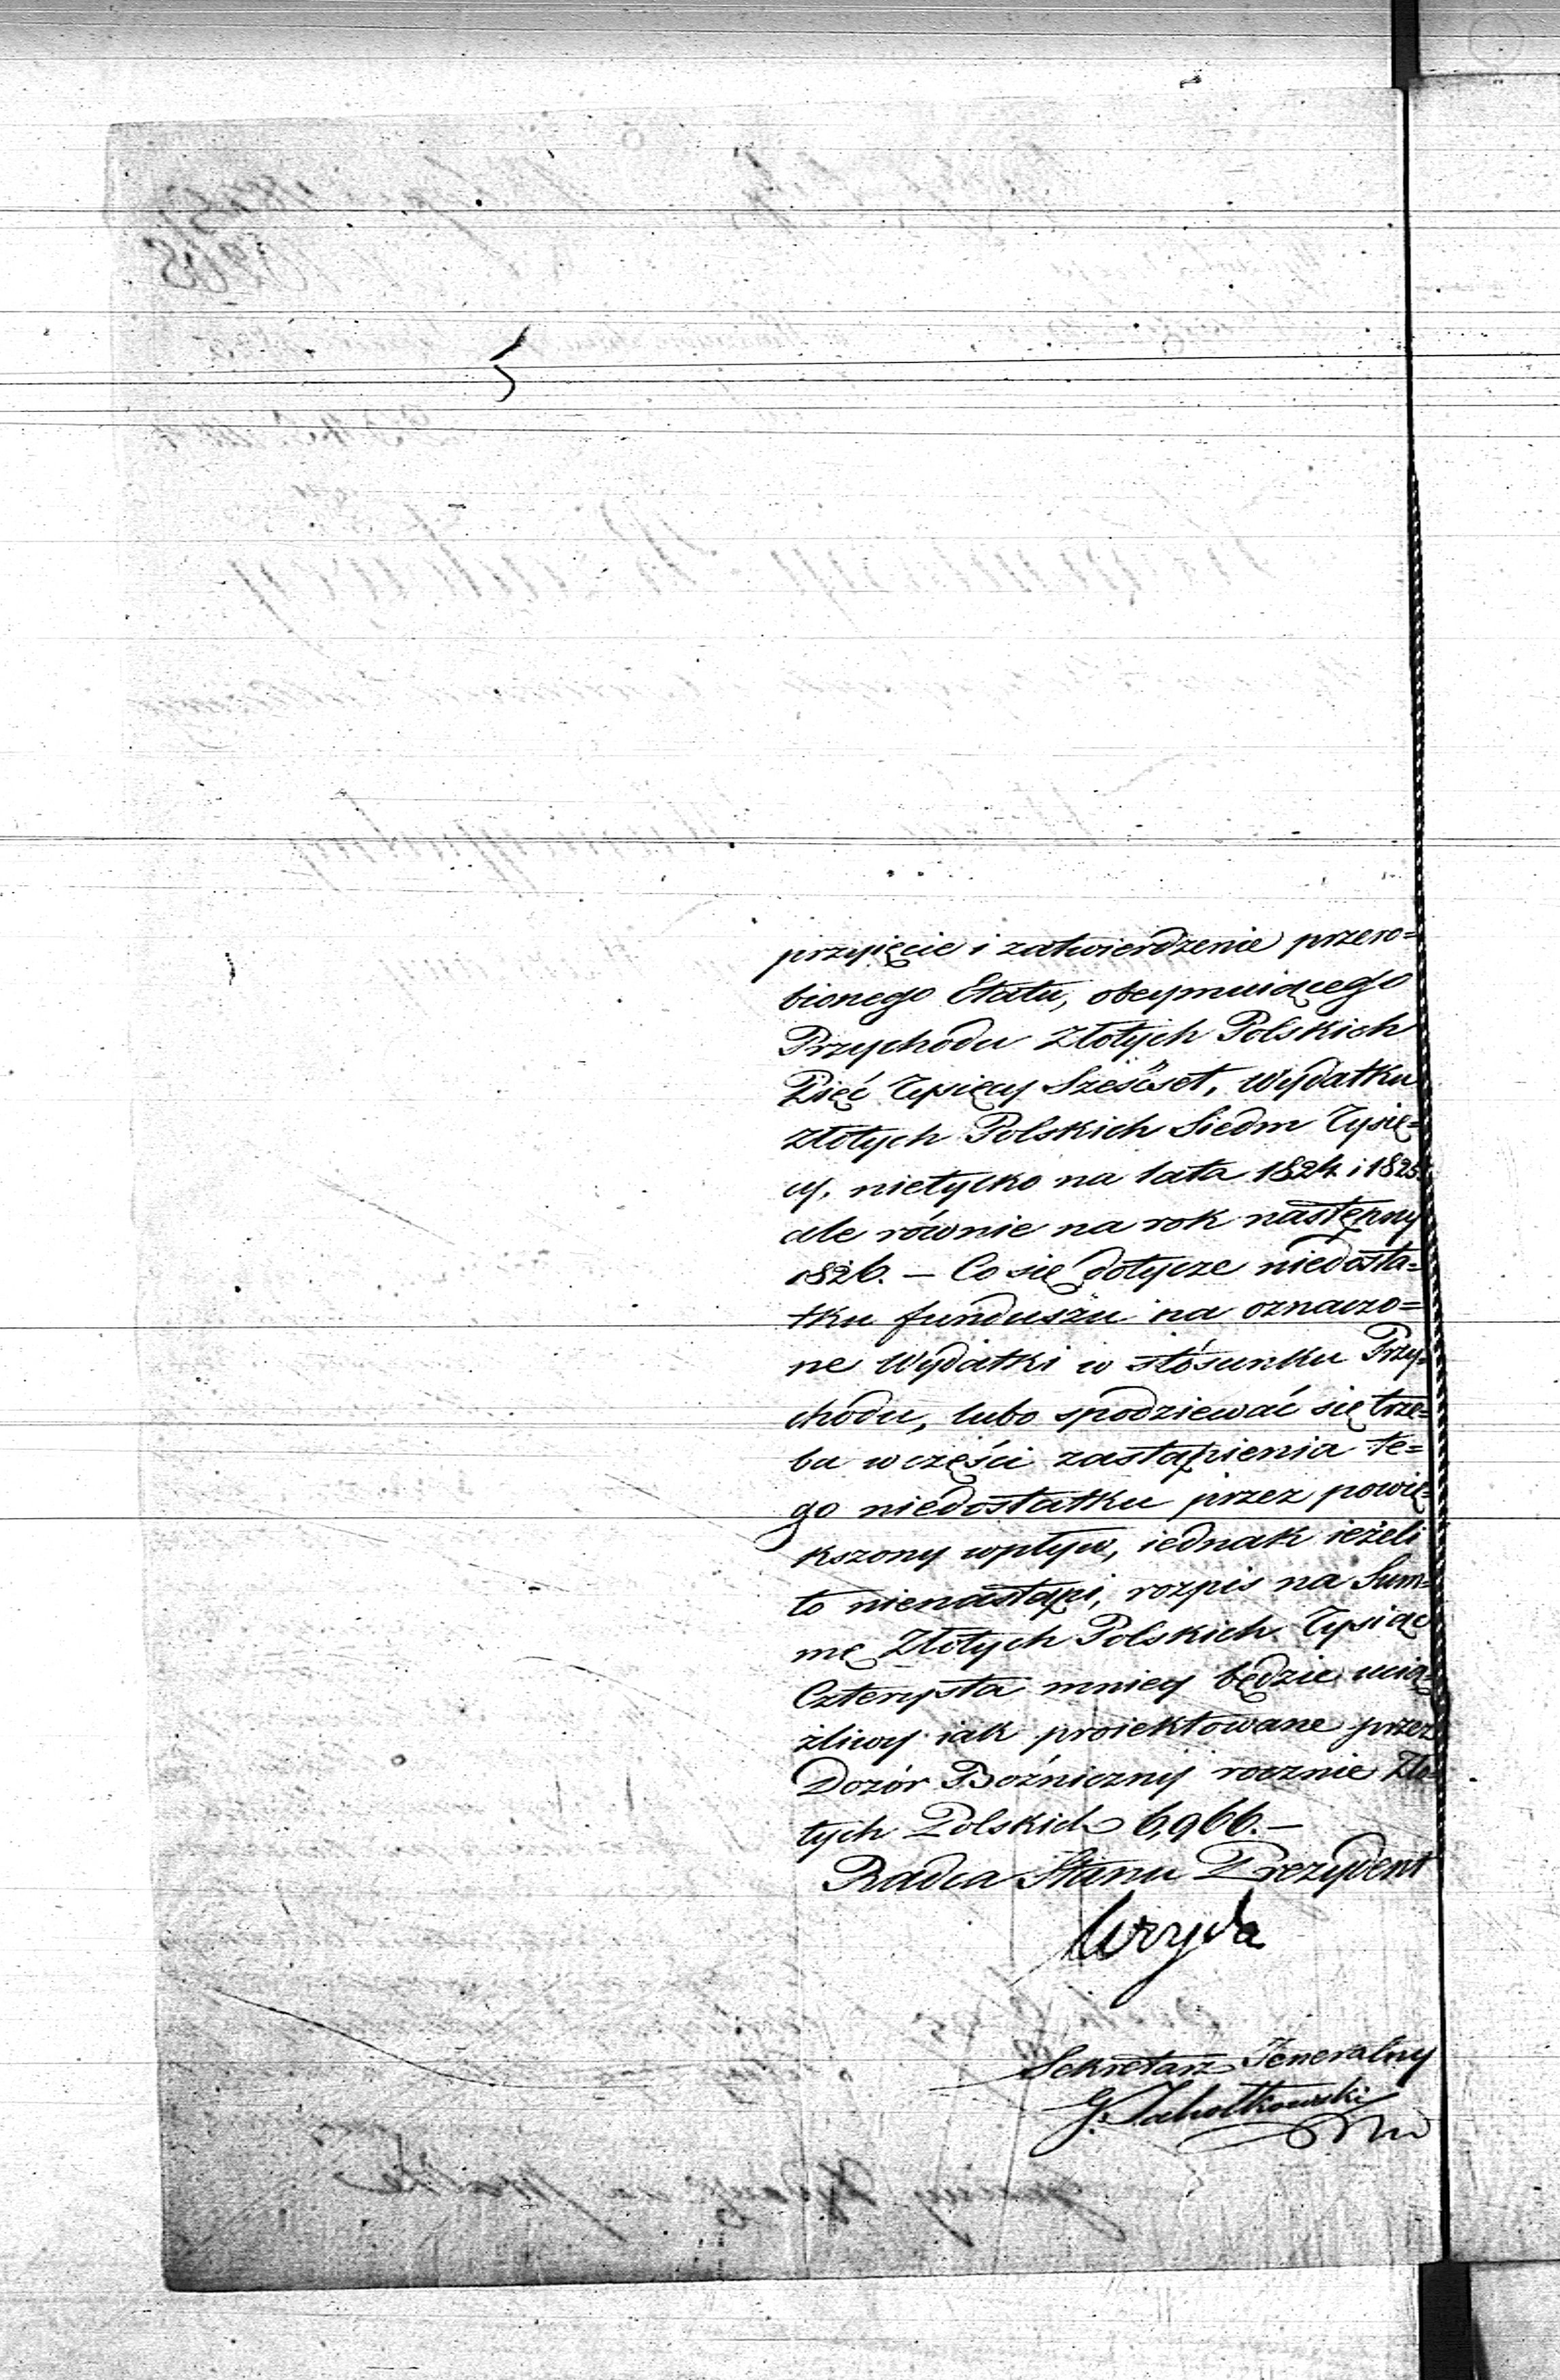 przyięcie i zatwierdzenie przero=
bionego Etatu, obeymuiącego
Przychodu Złotych Polskich
Pięć Tysięcy Sześćset, Wydatku
Złotych Polskich Siedm Tysię=
cy, nietylko na lata 1824 i 1825.
ale równie na rok następny
1826. — Co się dotycze niedosta=
tku funduszu na oznaczo=
ne Wydatki w stósunku Przy=
chodu, lubo spodziewać się trze=
ba w części zastąpienia te=
go niedostatku przez powię=
kszony wpływ, iednak ieżeli
to nienastąpi, rozpis na Sum=
mę Złotych Polskich Tysiąc
Czterysta mniey będzie ucią=
żliwy iak proiektowane przez
Dozór Bożniczny rocznie Zło=
tych Polskich 6,966. —
Radca Stanu Prezydent
Sekretarz Jeneralny